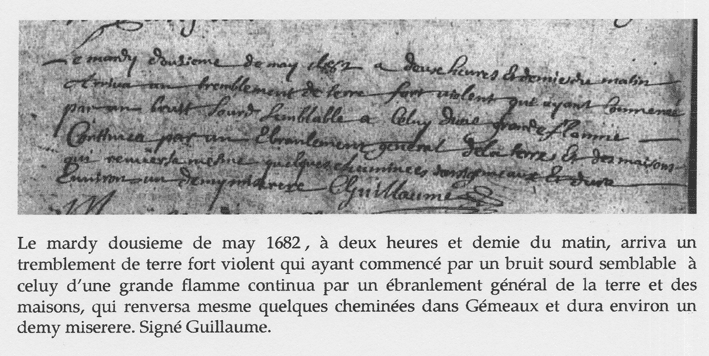 Le mardy dousieme de may 1682 a deux heures et demie du matin
arriva un tremblement de terre fort violent qui ayant commencé
par un bruit sourd semblable a celuy dune grande flamme
Continua par un Ebranlement general de la terre et des maisons
qui renversa mesme quelques cheminées dans gemeaux et dura
Environ un demy miserere Guillaume
Le mardy dousieme de may 1682, à deux heures et demie du matin, arriva un
tremblement de terre fort violent qui ayant commencé par un bruit sourd semblable à
celuy d'une grande flamme continua par un ébranlement général de la terre et des
maisons, qui renversa mesme quelques cheminées dans Gémeaux et dura environ un
demy miserere. Signé Guillaume.